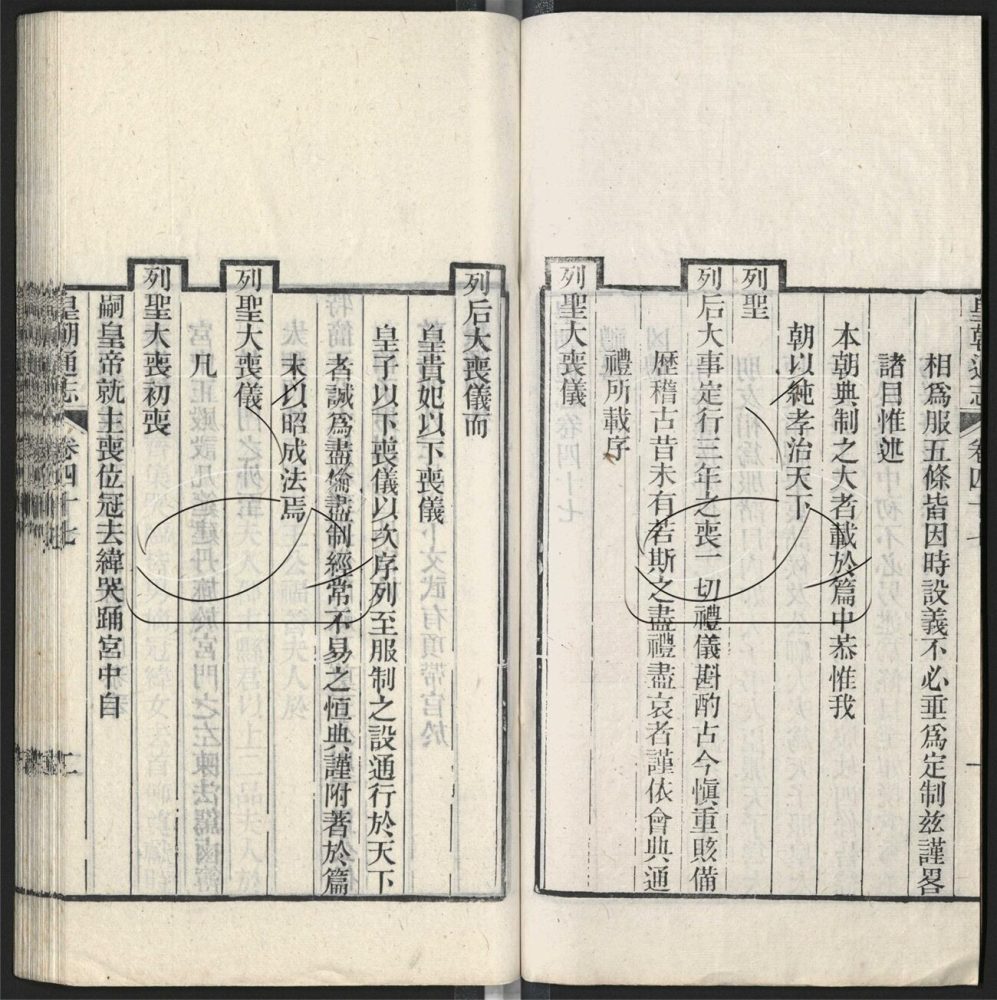 皇朝通志 卷四十七 一
相爲服五條皆因時設義不必垂爲定制兹謹畧
諸目惟述
本朝典制之大者載於篇中恭惟我
朝以純孝治天下
列聖
列后大事定行三年之喪一切禮儀斟酌古今愼重賅備
歷稽古昔未有若斯之盡禮盡哀者謹依會典通
禮所載序
列聖大喪儀
列后大喪儀而
皇貴妃以下喪儀
皇子以下喪儀以次序列至服制之設通行於天下
者誠爲盡倫盡制經常不易之恒典謹附著於篇
末以昭成法焉
列聖大喪儀
凡
列聖大喪初喪
嗣皇帝就主喪位冠去緯哭踊宮中自
皇朝通志 卷四十七 二